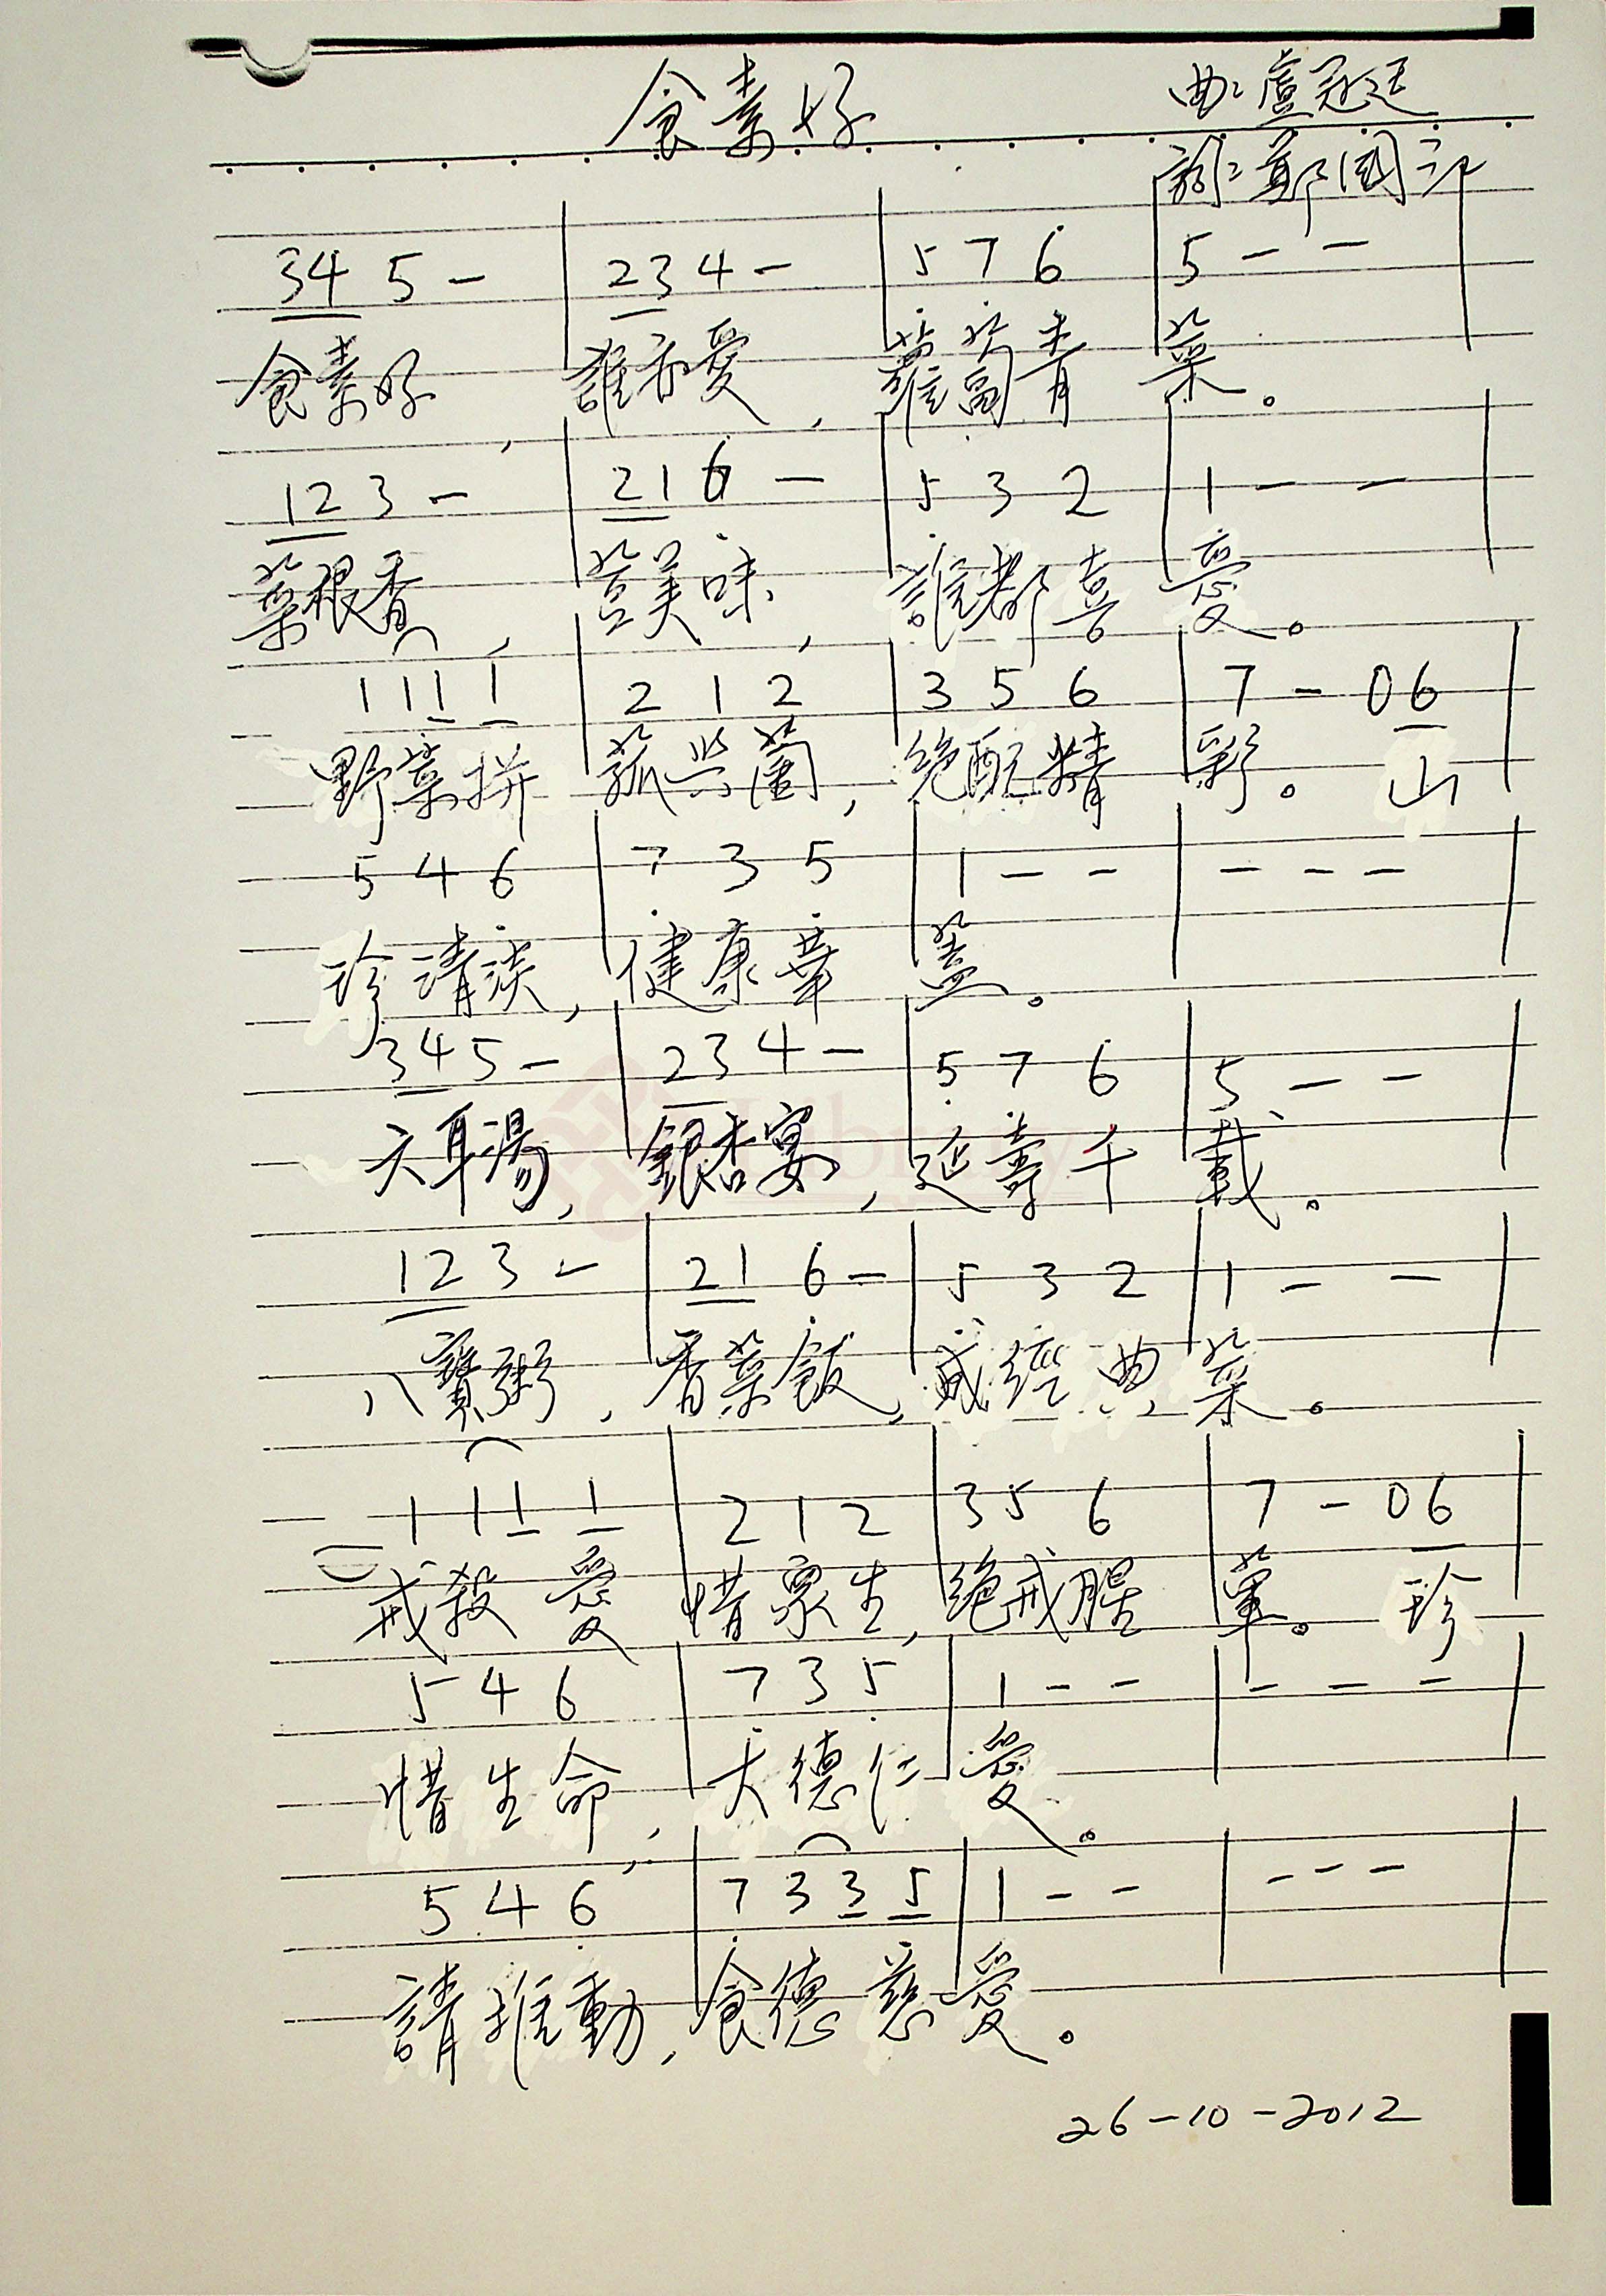 食素好 曲：盧冠廷
詞：鄭國江
34 5 - | 234 - | 5 7 6 | 5 - - |
食素好，誰不愛，蘿蔔青菜。
12 3 - | 21 6 - | 5 3 2 | 1 - - |
菜根香，荳美味，誰都喜愛。
1 1 1 1 | 2 1 2 | 3 5 6 | 7 - 0 6 |
野菜拼菰與菌，絕配精彩。山
5 4 6 | 7 3 5 | 1 - - | - - - |
珍清淡，健康華蓋。
34 5 - | 23 4 - | 5 7 6 | 5 - - |
木耳湯，銀杏宴，延壽千載。
12 3 - | 21 6 - | 5 3 2 | 1 - - |
八寶粥，香菜飯，盛經典菜。
1 1 1 1 | 2 1 2 | 3 5 6 | 7 - 0 6 |
戒殺愛惜眾生，絕戒腥葷。珍
5 4 6 | 7 3 5 | 1 - - | - - - |
惜生命，大德仁愛。
5 4 6 | 7 3 3 5 | 1 - - | - - - |
請推動，食德慈愛。
26-10-2012